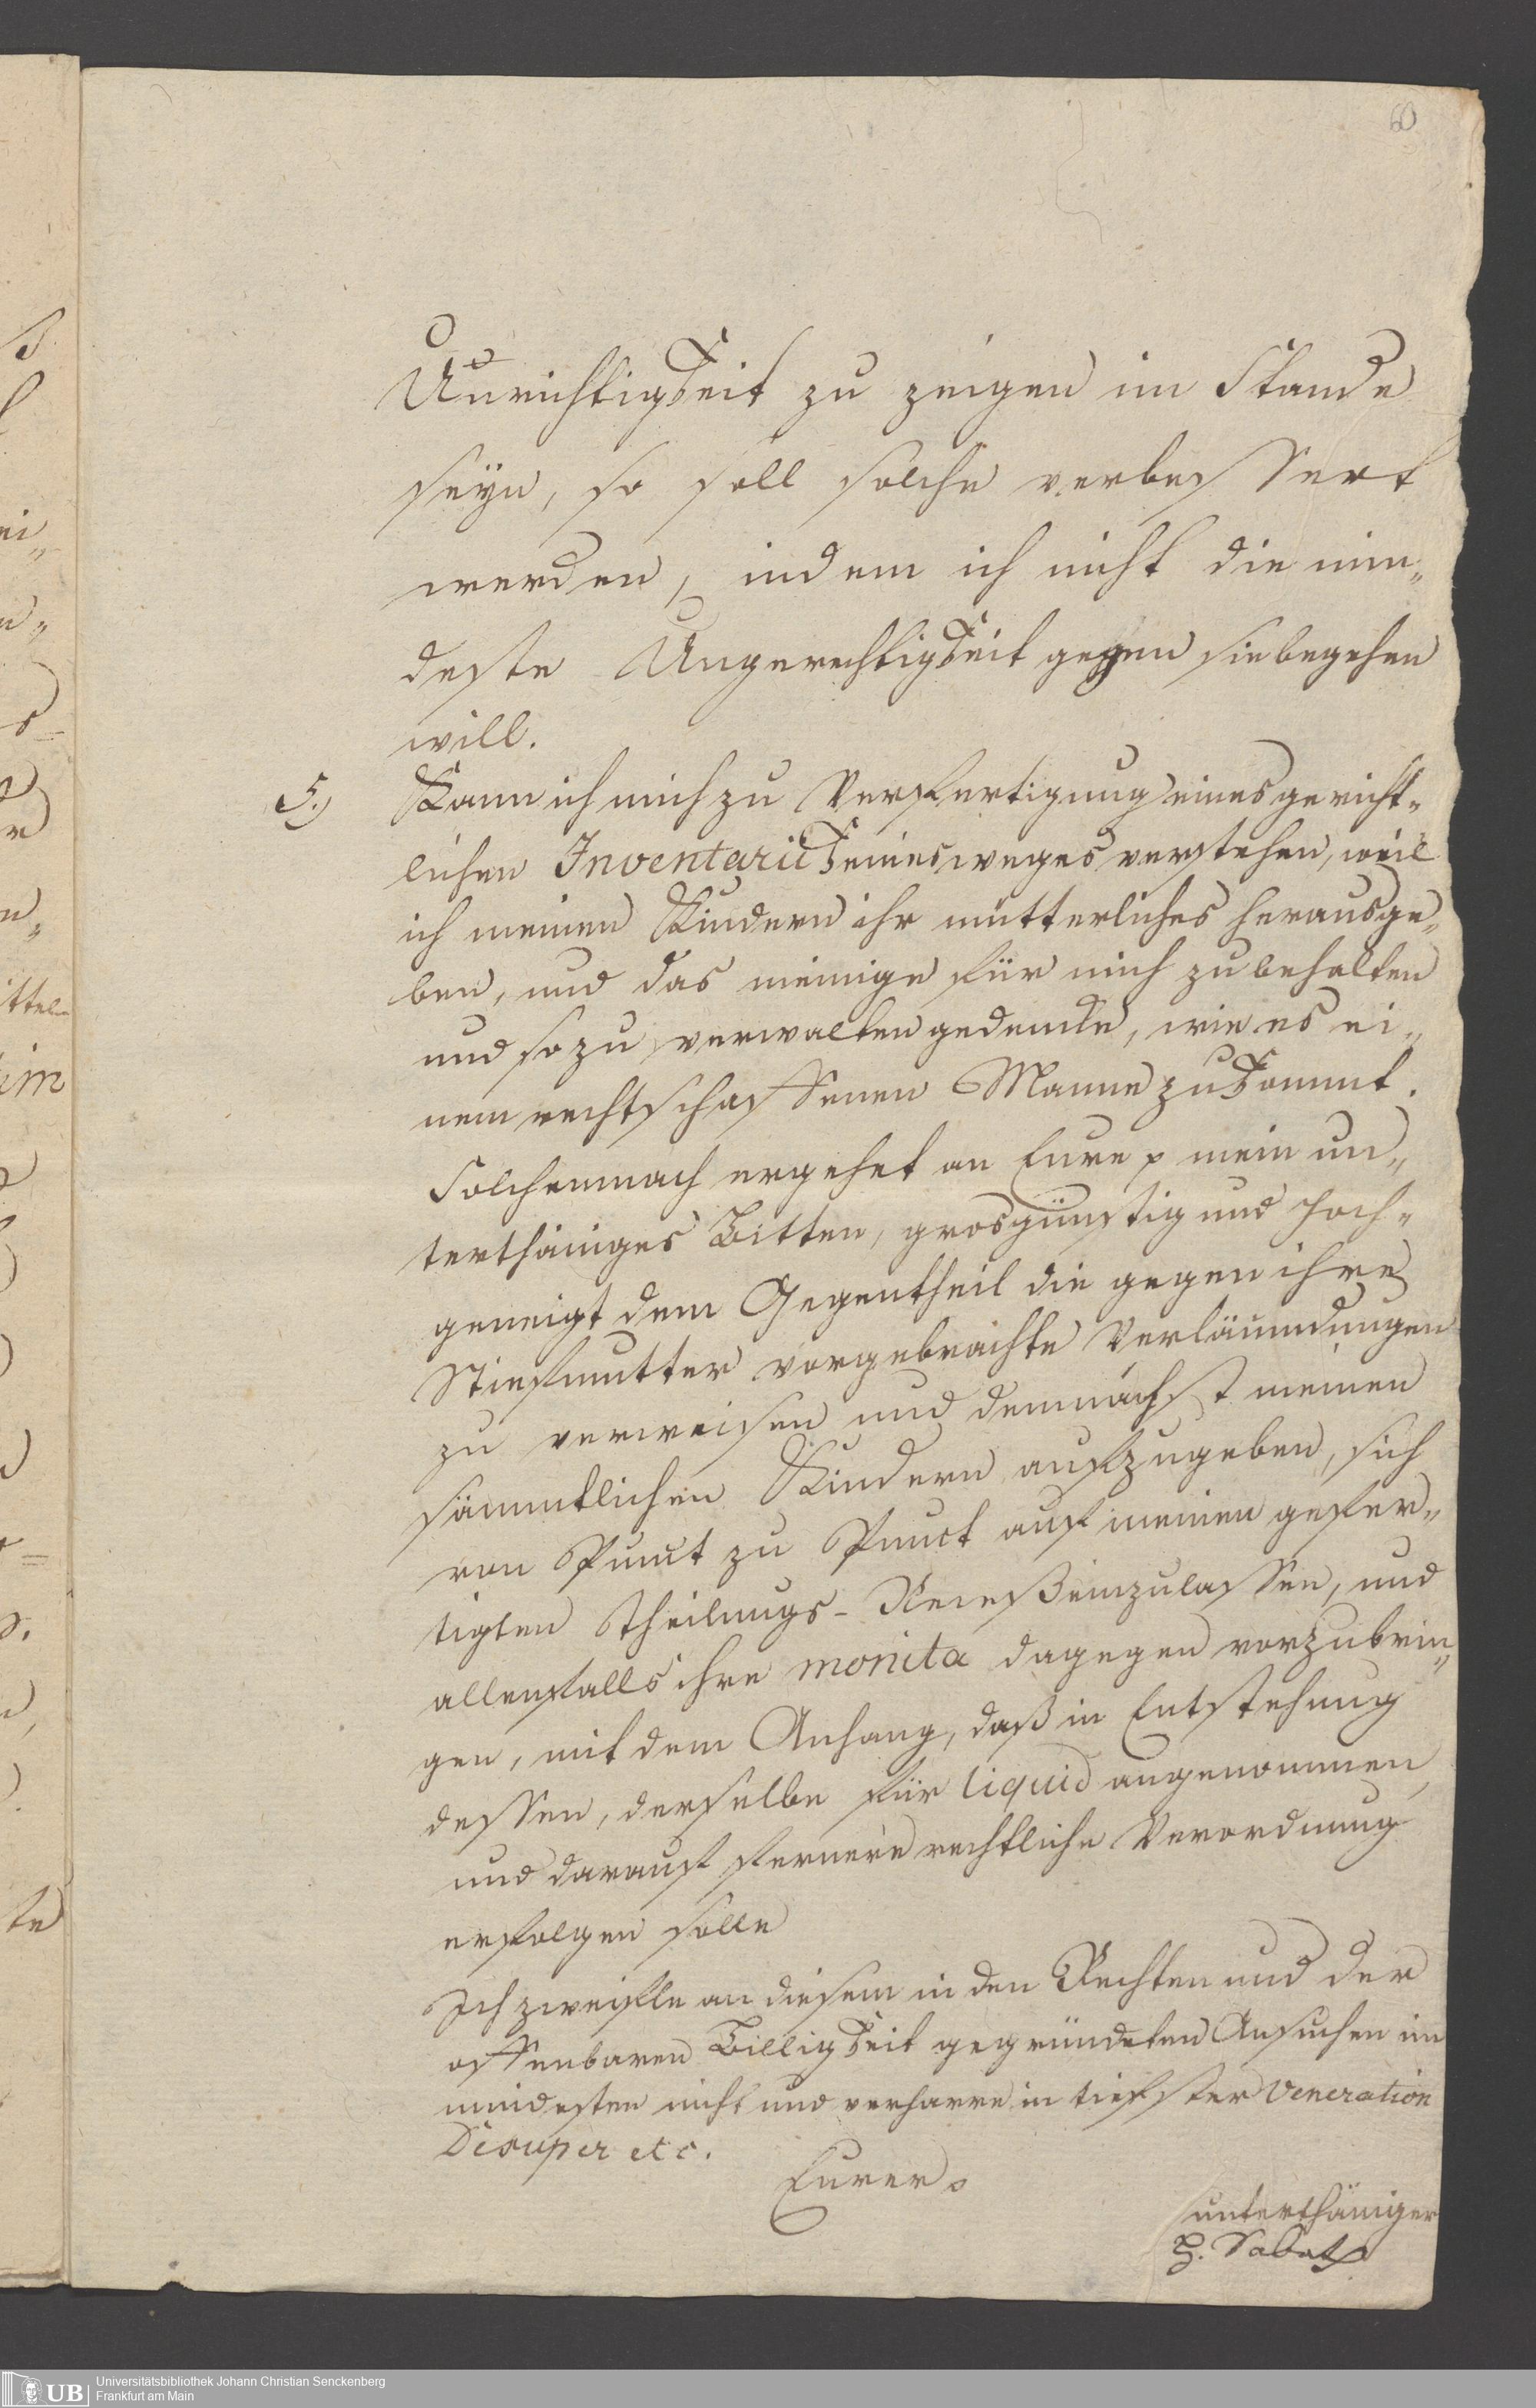 60
Unrichtigkeit zu zeigen im Stande
seyn, so soll solche verbessert
werden, indem ich nicht die min„
deste Ungerechtigkeit gegen sie begehen
will.
5.) Kann ich mich zu Verfertigung eines gericht„
lichen Inventarii keinesweges verstehen, weil
ich meinen Kindern ihr mütterliches herausge„
ben, und das meinige für mich zu behalten
und so zu verwalten gedencke, wie es ei„
nem rechtschaffenen Manne zukommt.
Solchemnach ergehet an Eure p mein un„
terthäniges Bitten, grosgünstig und hoch„
geneigt dem Gegentheil die gegen ihre
Stiefmutter vorgebrachte Verläumdungen
zu verweisen und demnächst meinen
sämmtlichen Kindern aufzugeben, sich
von Punct zu Punct auf meinen gefer„
tigten Theilungs-Receß einzulassen, und
allenfalls ihre monita dagegen vorzubrin„
gen, mit dem Anhang, daß in Entstehung
dessen, derselbe für liquid angenommen,
und darauf fernere rechtliche Verordnung
erfolgen solle
Ich zweifle an diesem in den Rechten und der
offenbaren Billigkeit gegründeten Ansuchen im
mindesten nicht und verharre in tiefster Veneration
Desuper etc.
Eurer p
unterthäniger
UB Universitätsbibliothek Johann Christian Senckenberg
Frankfurt am Main